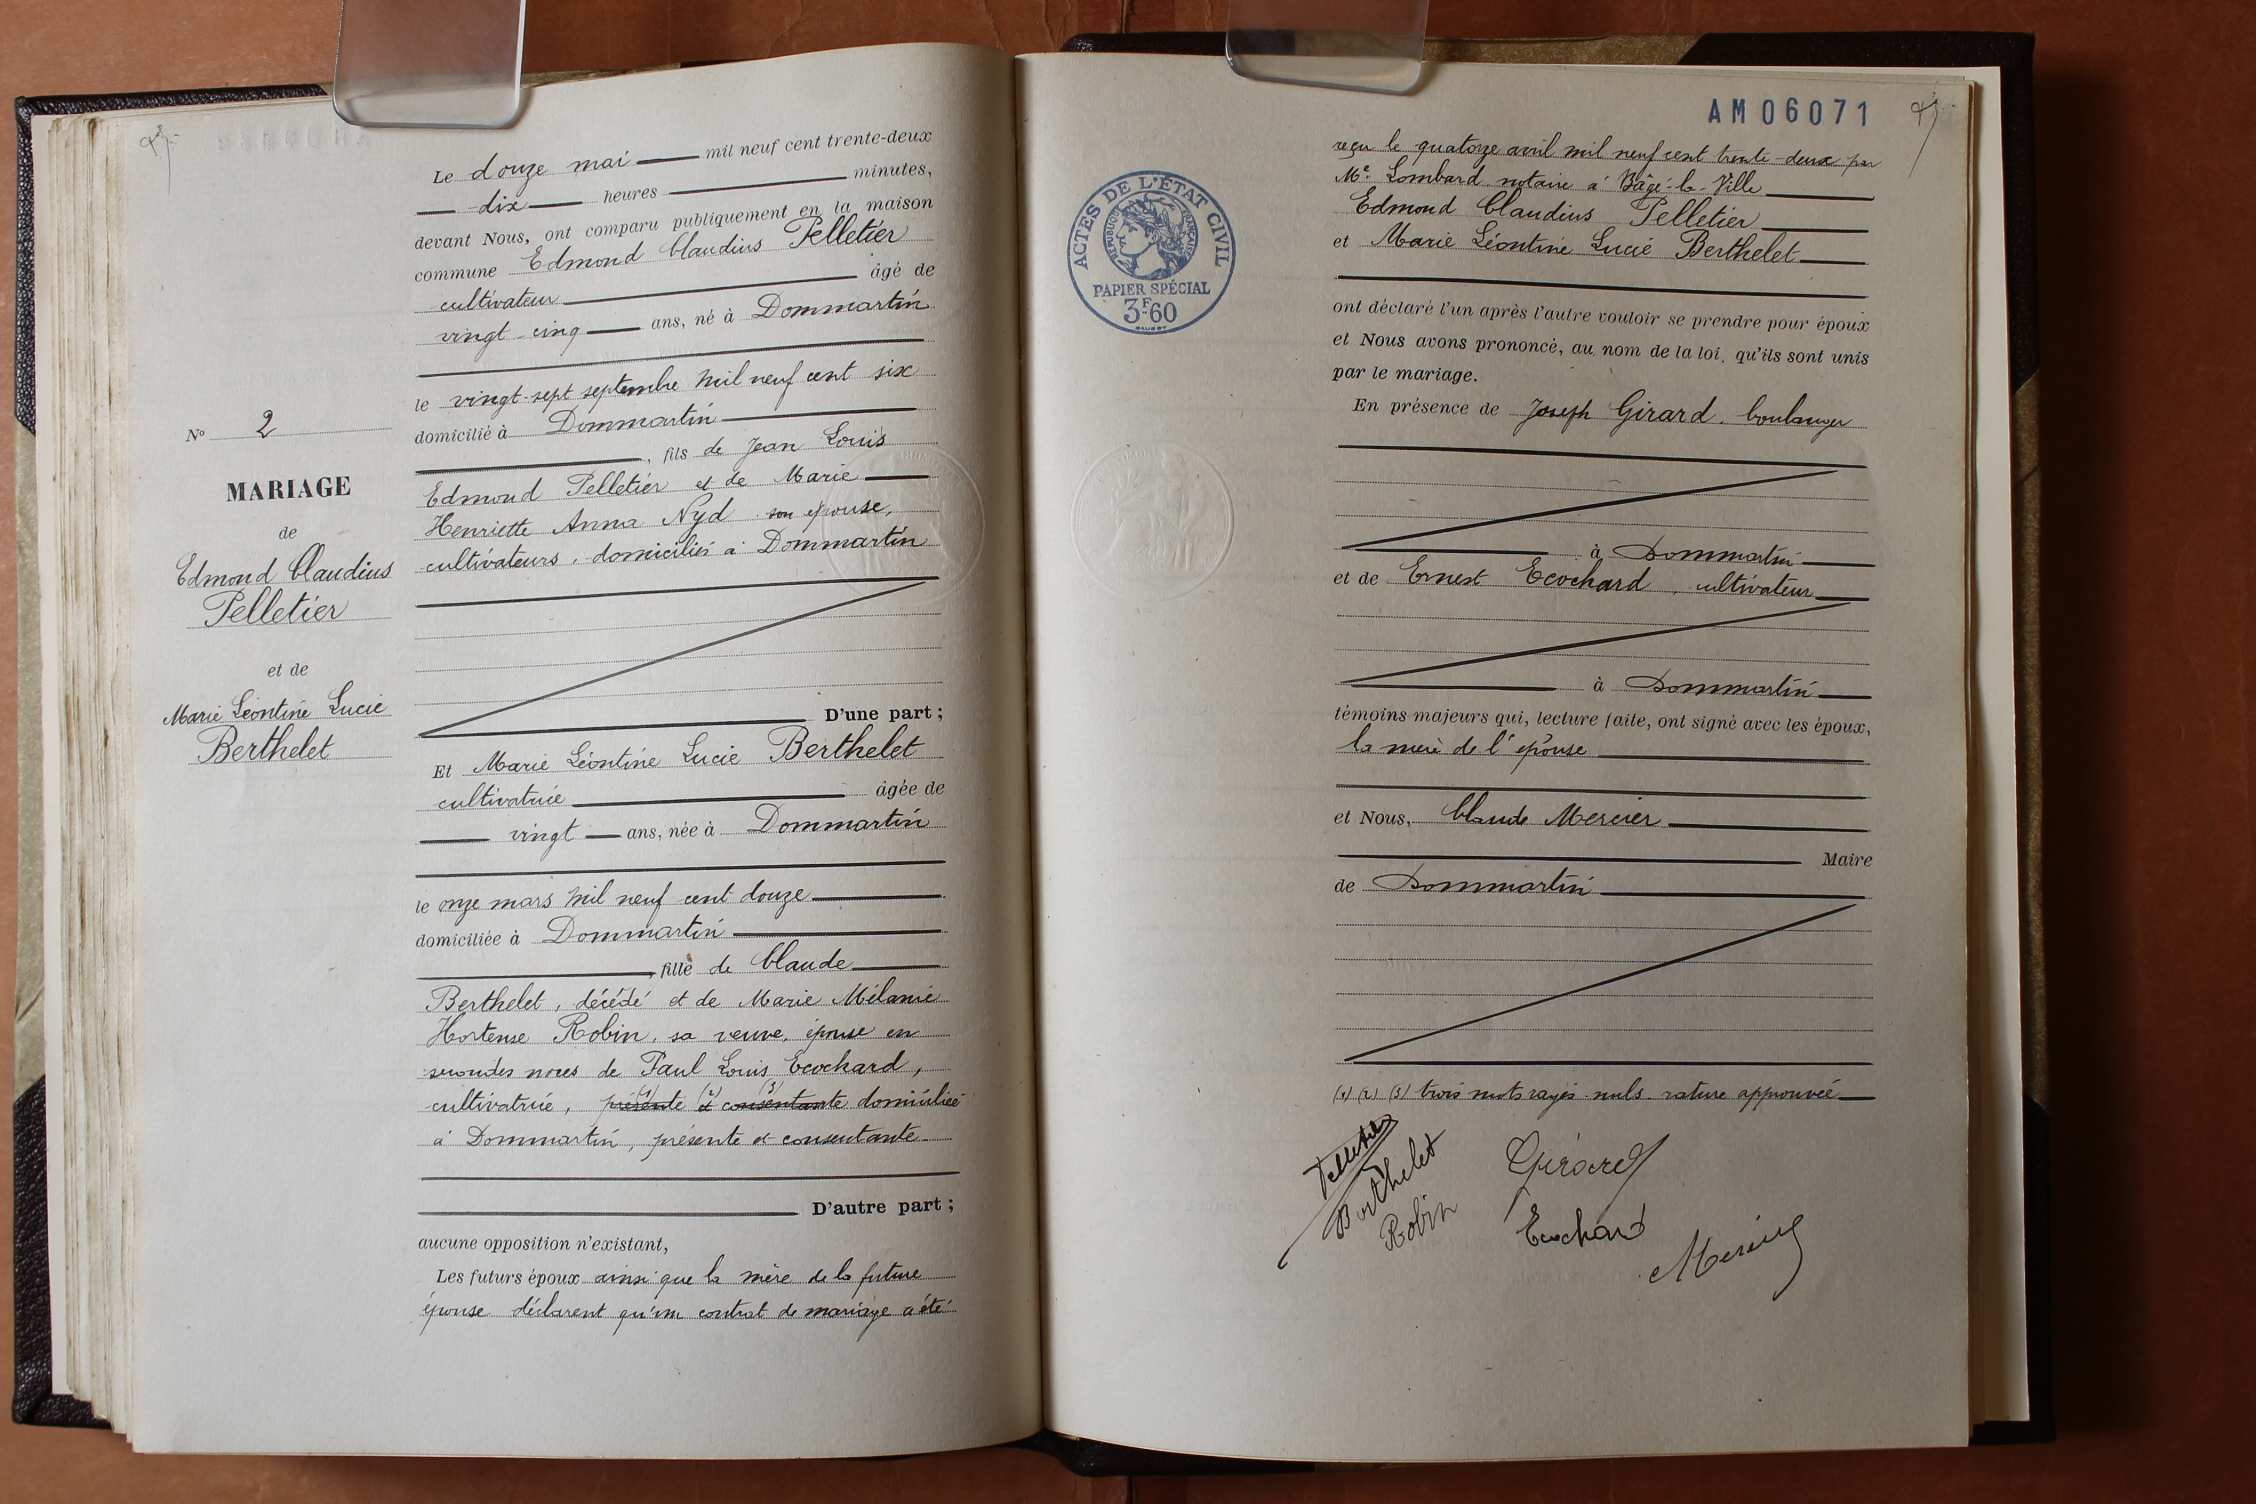 Le douze mai mil neuf cent trente-deux
dix heures minutes,
devant Nous, ont comparu publiquement en la maison
commune Edmond Claudius Pelletier
cultivateur âgé de
vingt-cinq ans, né à Dommartin
le vingt-sept septembre mil neuf cent six
domicilié à Dommartin
, fils de Jean Louis
Edmond Pelletier et de Marie
Henriette Anna Nyd son épouse,
cultivateurs, domiciliés à Dommartin
D'une part ;
No 2
MARIAGE
de
Edmond Claudius
Pelletier
et de
Marie Léontine Lucie
Berthelet
Et Marie Léontine Lucie Berthelet
cultivatrice âgée de
vingt ans, née à Dommartin
le onze mars mil neuf cent douze
domiciliée à Dommartin
, fille de Claude
Berthelet, décédé et de Marie Mélanie
Hortense Robin, sa veuve, épouse en
secondes noces de Paul Louis Ecochard,
cultivatrice, (1) présente (2) et (3) consentante domiciliée
à Dommartin, présente et consentante
D'autre part ;
aucune opposition n'existant,
Les futurs époux ainsi que la mère de la future
épouse déclarent qu'un contrat de mariage a été
AM06071
ACTES DE L'ÉTAT CIVIL
RÉPUBLIQUE FRANÇAISE
PAPIER SPÉCIAL
3F60
reçu le quatorze avril mil neuf cent trente-deux par
Me Lombard notaire à Bâgé-la-Ville
Edmond Claudius Pelletier
et Marie Léontine Lucie Berthelet
ont déclaré l'un après l'autre vouloir se prendre pour époux
et Nous avons prononcé, au nom de la loi, qu'ils sont unis
par le mariage.
En présence de Joseph Girard, boulanger
à Dommartin
et de Ernest Ecochard, cultivateur
à Dommartin
témoins majeurs qui, lecture faite, ont signé avec les époux,
la mère de l'épouse
et Nous, Claude Mercier
Maire
de Dommartin
(1) (2) (3) trois mots rayés nuls. rature approuvée
Pelletier
Berthelet
Robin
Girard
Ecochard
Mercier